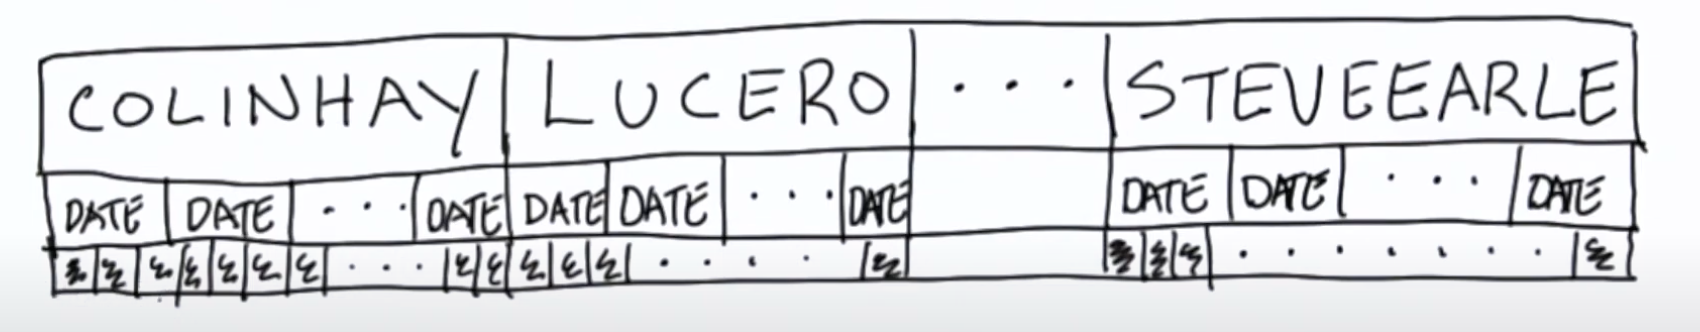 COLINHAY LUCERO . . . STEVEEARLE
DATE DATE . . . DATE DATE DATE . . . DATE DATE DATE . . . DATE